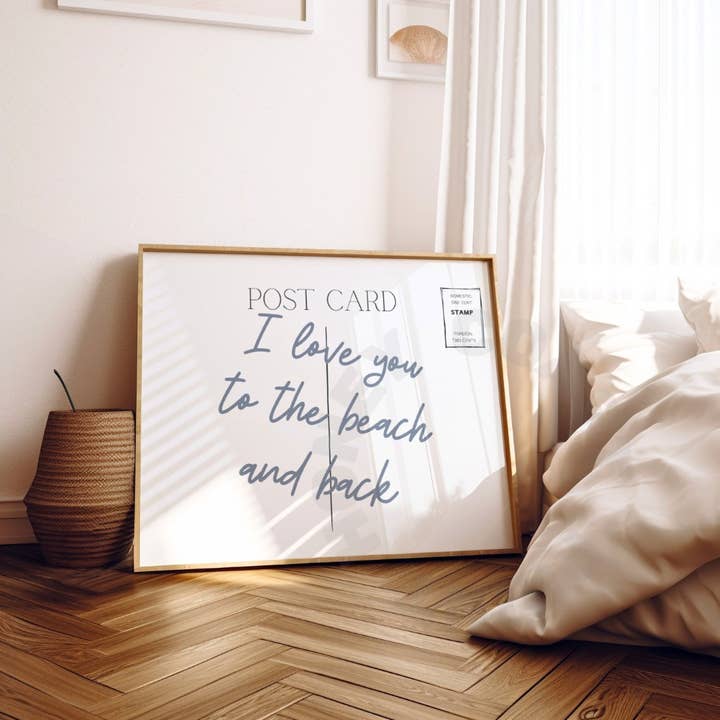 POST CARD
DOMESTIC
ONE CENT
STAMP
FOREIGN
TWO CENTS
I love you
to the beach
and back